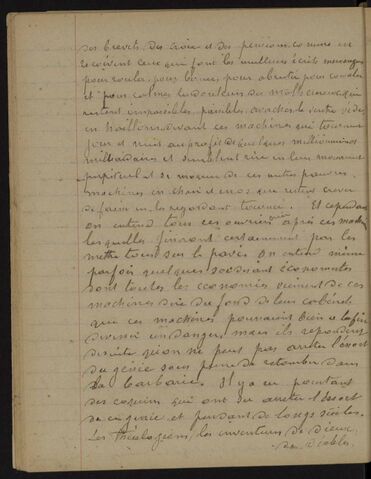 des brevets, des croix et des pensions comme en
reçoivent ceux qui font les meilleurs écrits mensongers
pour rouler, pour berner, pour abrutir, pour
et pour calmer la douleur des malheureux qui
restent impossibles, le ventre vide
en haillons, devant ces machines qui tournent
jour et nuit au profit de quelques millionnaires
milliardaires et semblent rire en leur mouvement
perpétuel et se moquer de ces autres pauvres
machines en chair et en os que
de faim en les regardant tourner. Et cependant
on entend tous ces ouvriers crier après ces machines
lesquelles finiront certainement par les
mettre tous sur le pavé. On entend même
parfois quelques soi disant économistes
dont toutes les économies viennent de ces
machines dire du fond de leur
que ces machines pourraient bien à la fin
devenir un danger, mais ils répondent
de suite qu'on ne peut pas arrêter l'essort
du génie sous peine de retomber dans
la barbarie. Il y a eu pourtant
des coquins qui ont su arrêter l'essort
de ce génie et pendant de longs siècles.
Les théologiens, les inventeurs de dieux,
de diables